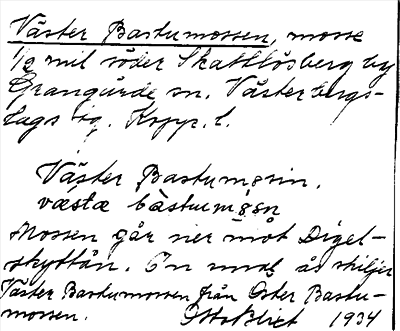 Väster Bastumossen, mosse
1/2 mil söder Skattlösberg by
Grangärde sn. Västerbergs-
lags tg. Kopp. l.
Väster Bastumåsin.
væstæ bàstumåsn
Mossen går ner mot Digel-
skyttån. En smal ås skiljer
Väster Bastumossen från Öster Bastu-
mossen. Otto Blixt 1934